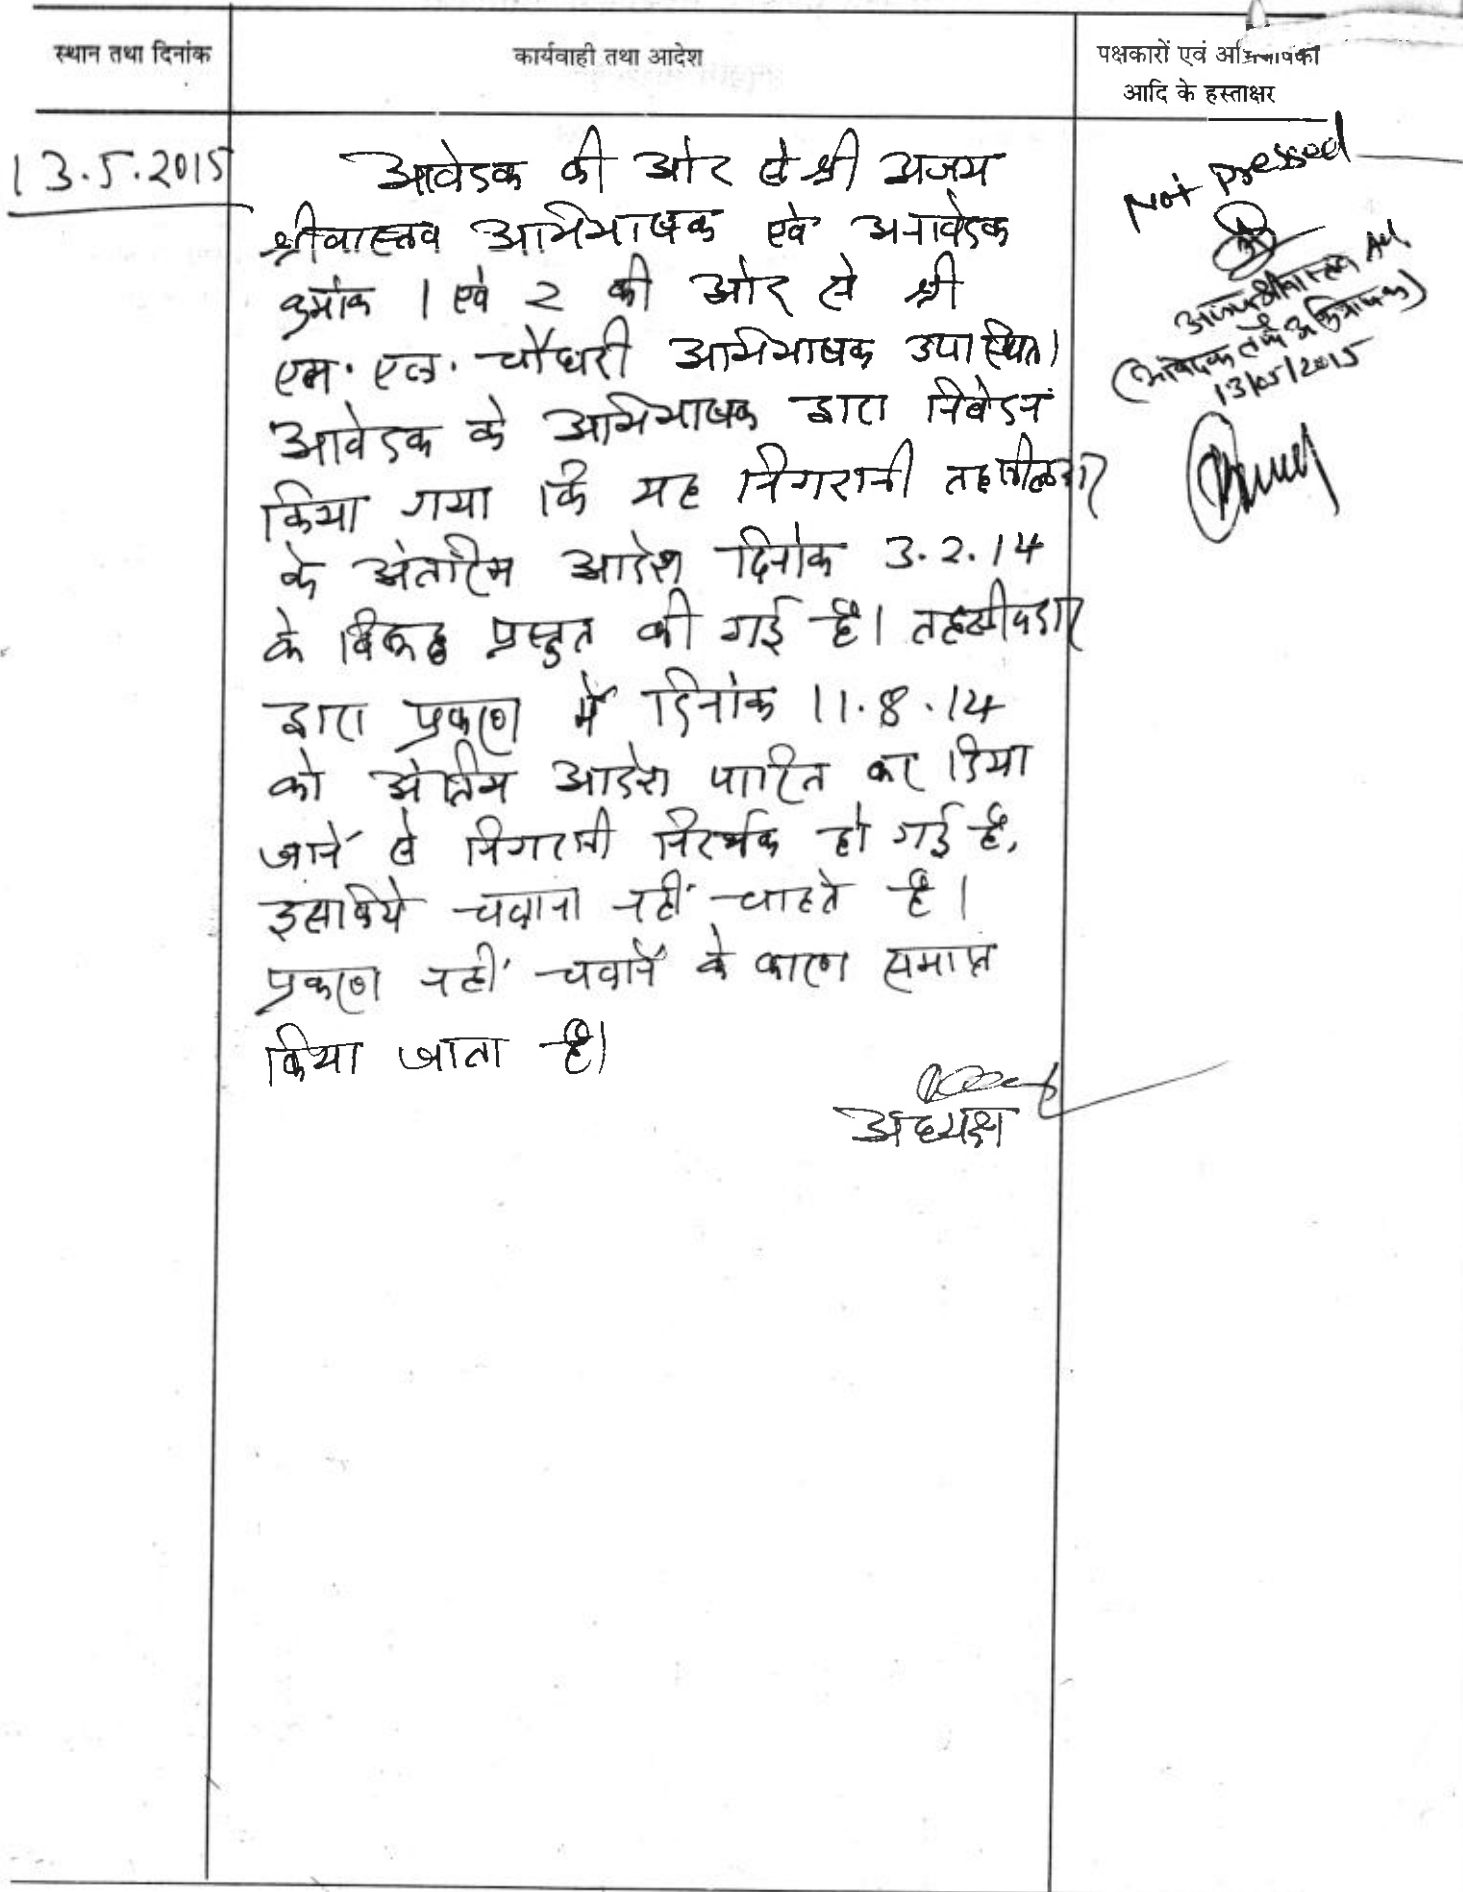 स्थान तथा दिनांक
कार्यवाही तथा आदेश
पक्षकारों एवं अभिभाषकों
आदि के हस्ताक्षर
13.5.2015
आवेदक की ओर से श्री अजय
श्रीवास्तव अभिभाषक एवं अनावेदक
क्रमांक 1 एवं 2 की ओर से श्री
एम. एल. चौधरी अभिभाषक उपस्थित।
आवेदक के अभिभाषक द्वारा निवेदन
किया गया कि यह निगरानी तहसीलदार
के अंतरिम आदेश दिनांक 3.2.14
के विरूद्ध प्रस्तुत की गई है। तहसीलदार
द्वारा प्रकरण में दिनांक 11.8.14
को अंतिम आदेश पारित कर दिया
जाने से निगरानी निरर्थक हो गई है,
इसलिये चलाना नहीं चाहते है।
प्रकरण नहीं चलाने के कारण समाप्त
किया जाता है।
अध्यक्ष
Not Pressed
अजय श्रीवास्तव Adv.
(आवेदक तर्फे अभिभाषक)
13/05/2015